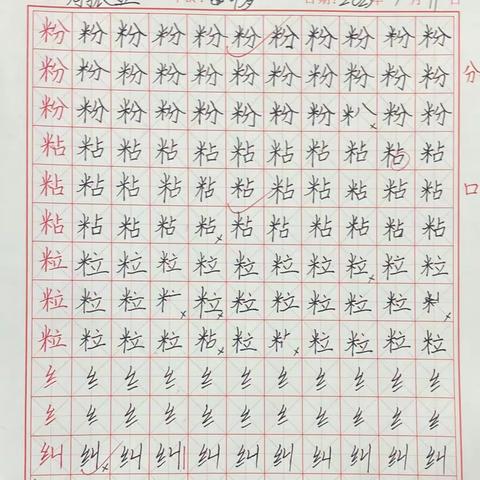 日期:
粉粉粉粉粉粉粉粉粉粉粉
粉粉粉粉粉粉粉粉粉粉粉 分
粉粉粉粉粉粉粉粉粉粉
粘粘粘粘粘粘粘粘粘粘粘
粘粘粘粘粘粘粘粘粘粘粘 口
粘粘粘粘粘粘粘粘粘粘粘
粒粒粒粒粒粒粒粒粒粒粒
粒粒粒粒粒粒粒粒粒
粒粒粒粒粘粒粒粒粒粒
纟纟纟纟纟纟纟纟纟纟纟
纟纟纟纟纟纟纟纟纟纟纟
纠纠纠纠纠纠纠纠纠纠纠